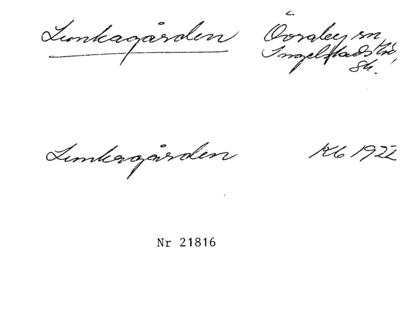 Lunkagården Övraby sn,
Ingelstads hd,
Sk.
Lunkagården Kb 1922
Nr 21816